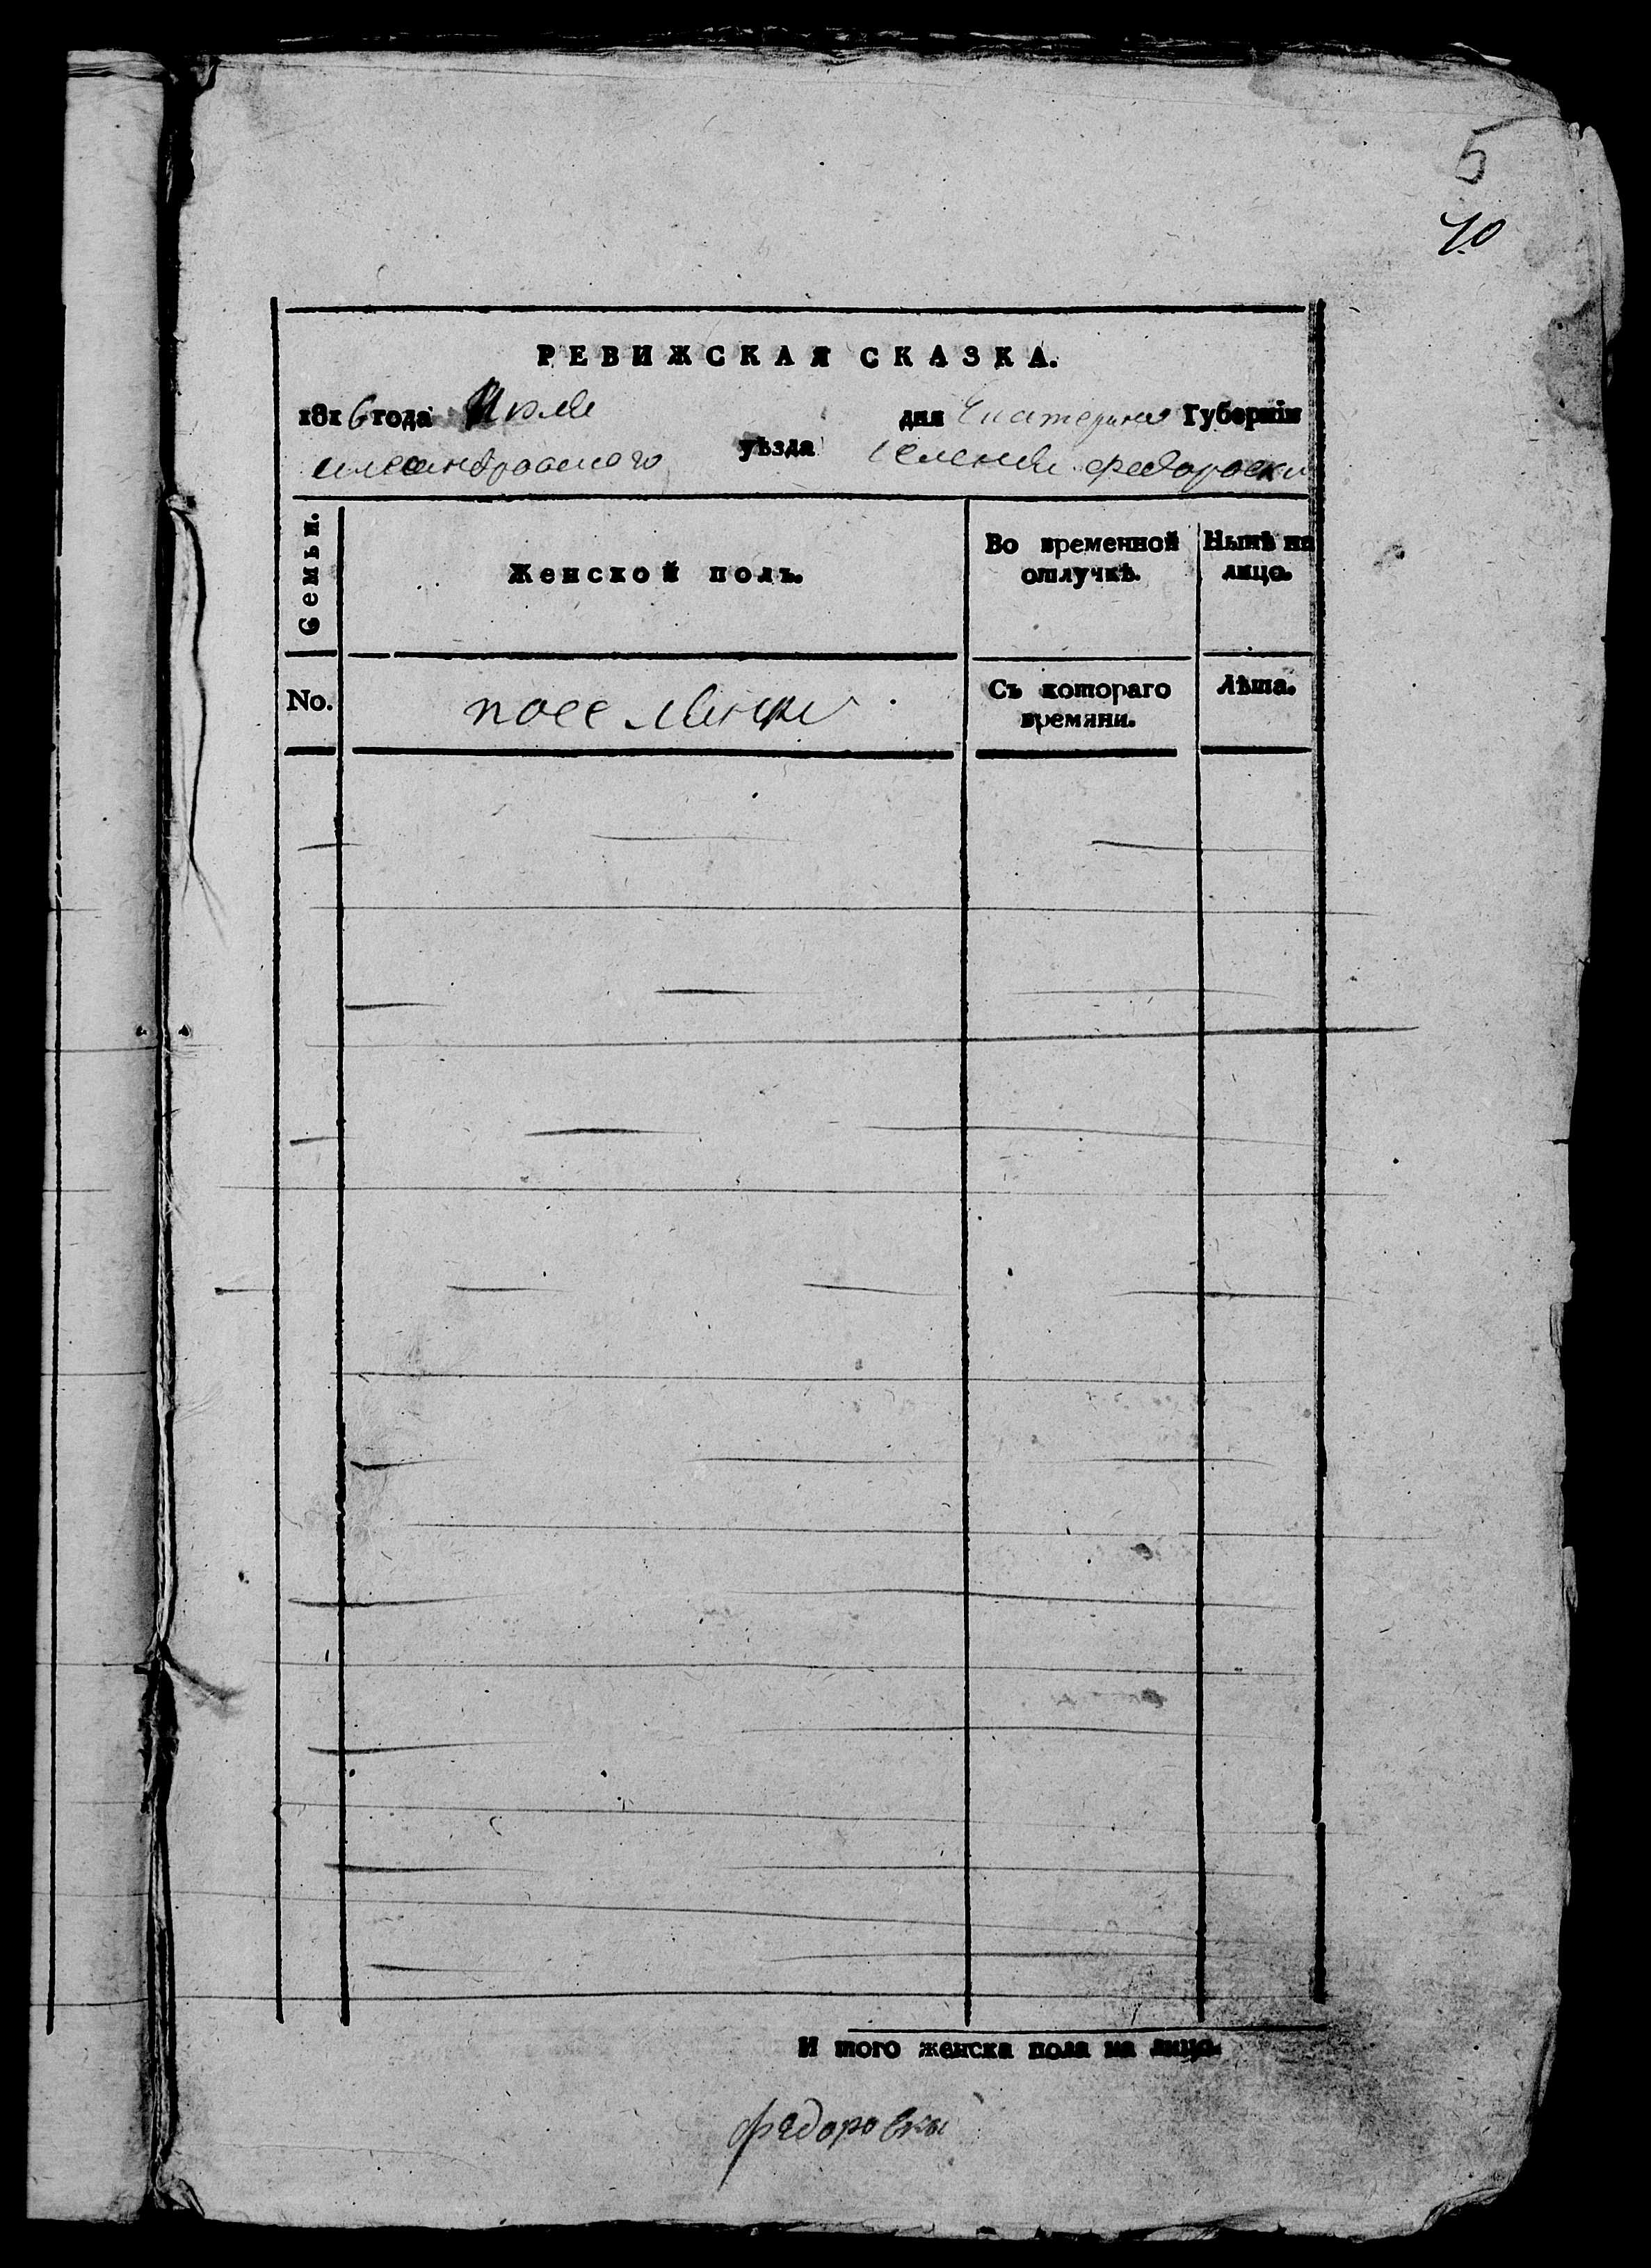 5
10
РЕВИЖСКАЯ СКАЗКА.
1816 года Июля дня Екатерино Губерніи
александровского уѣзда селения федоровки
Семьи.
Женской полъ.
Во временной отлучкѣ.
Нынѣ на лицо.
No.
поселянки
Съ котораго времяни.
Лѣта.
И того женска пола на лицо.
федоровки